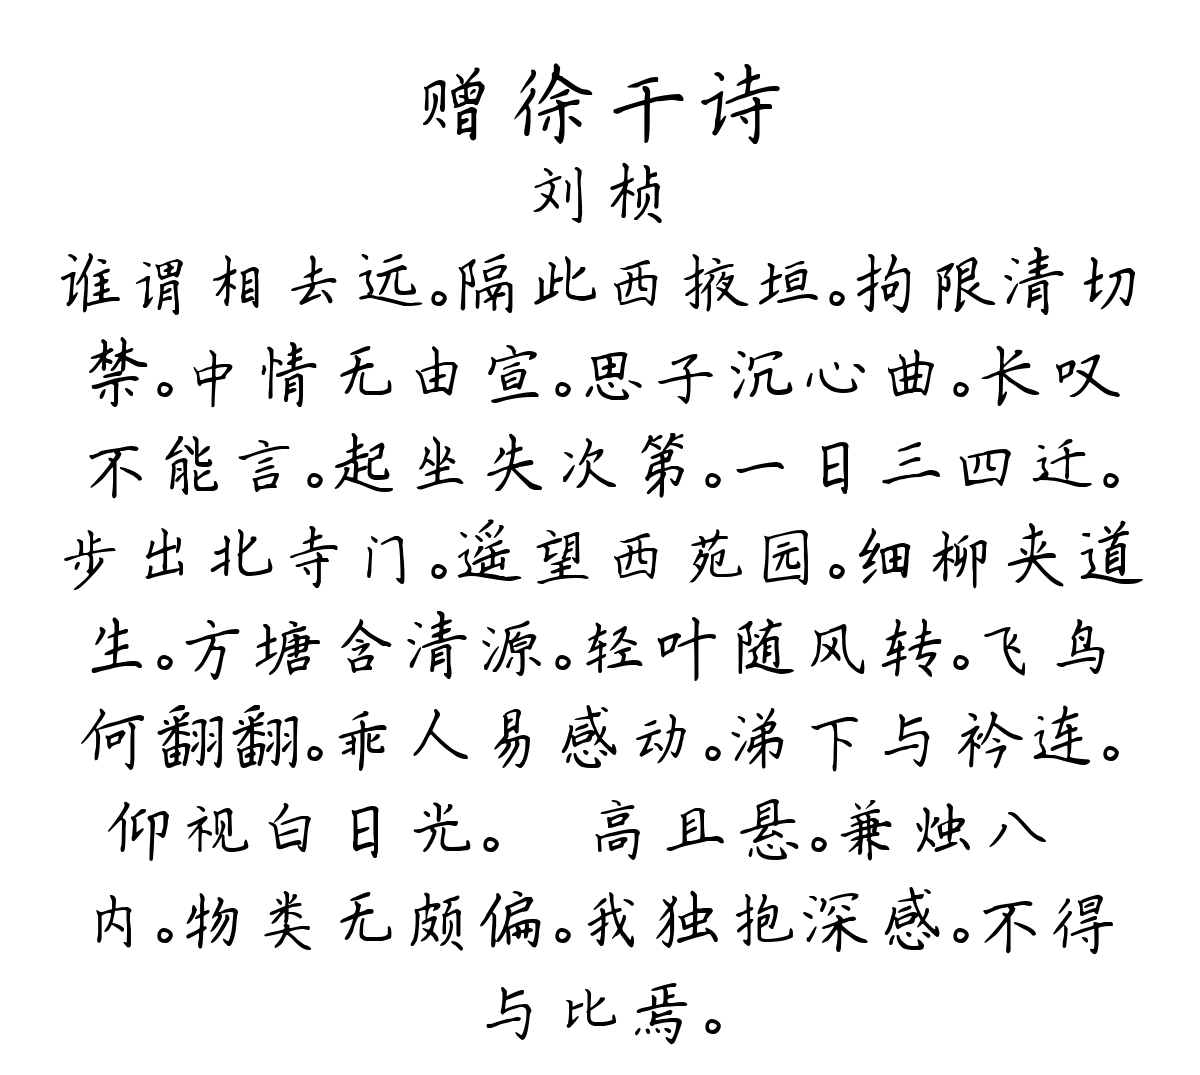 赠徐干诗
刘桢
谁谓相去远。隔此西掖垣。拘限清切
禁。中情无由宣。思子沉心曲。长叹
不能言。起坐失次第。一日三四迁。
步出北寺门。遥望西苑园。细柳夹道
生。方塘含清源。轻叶随风转。飞鸟
何翻翻。乖人易感动。涕下与衿连。
仰视白日光。　高且悬。兼烛八
内。物类无颇偏。我独抱深感。不得
与比焉。